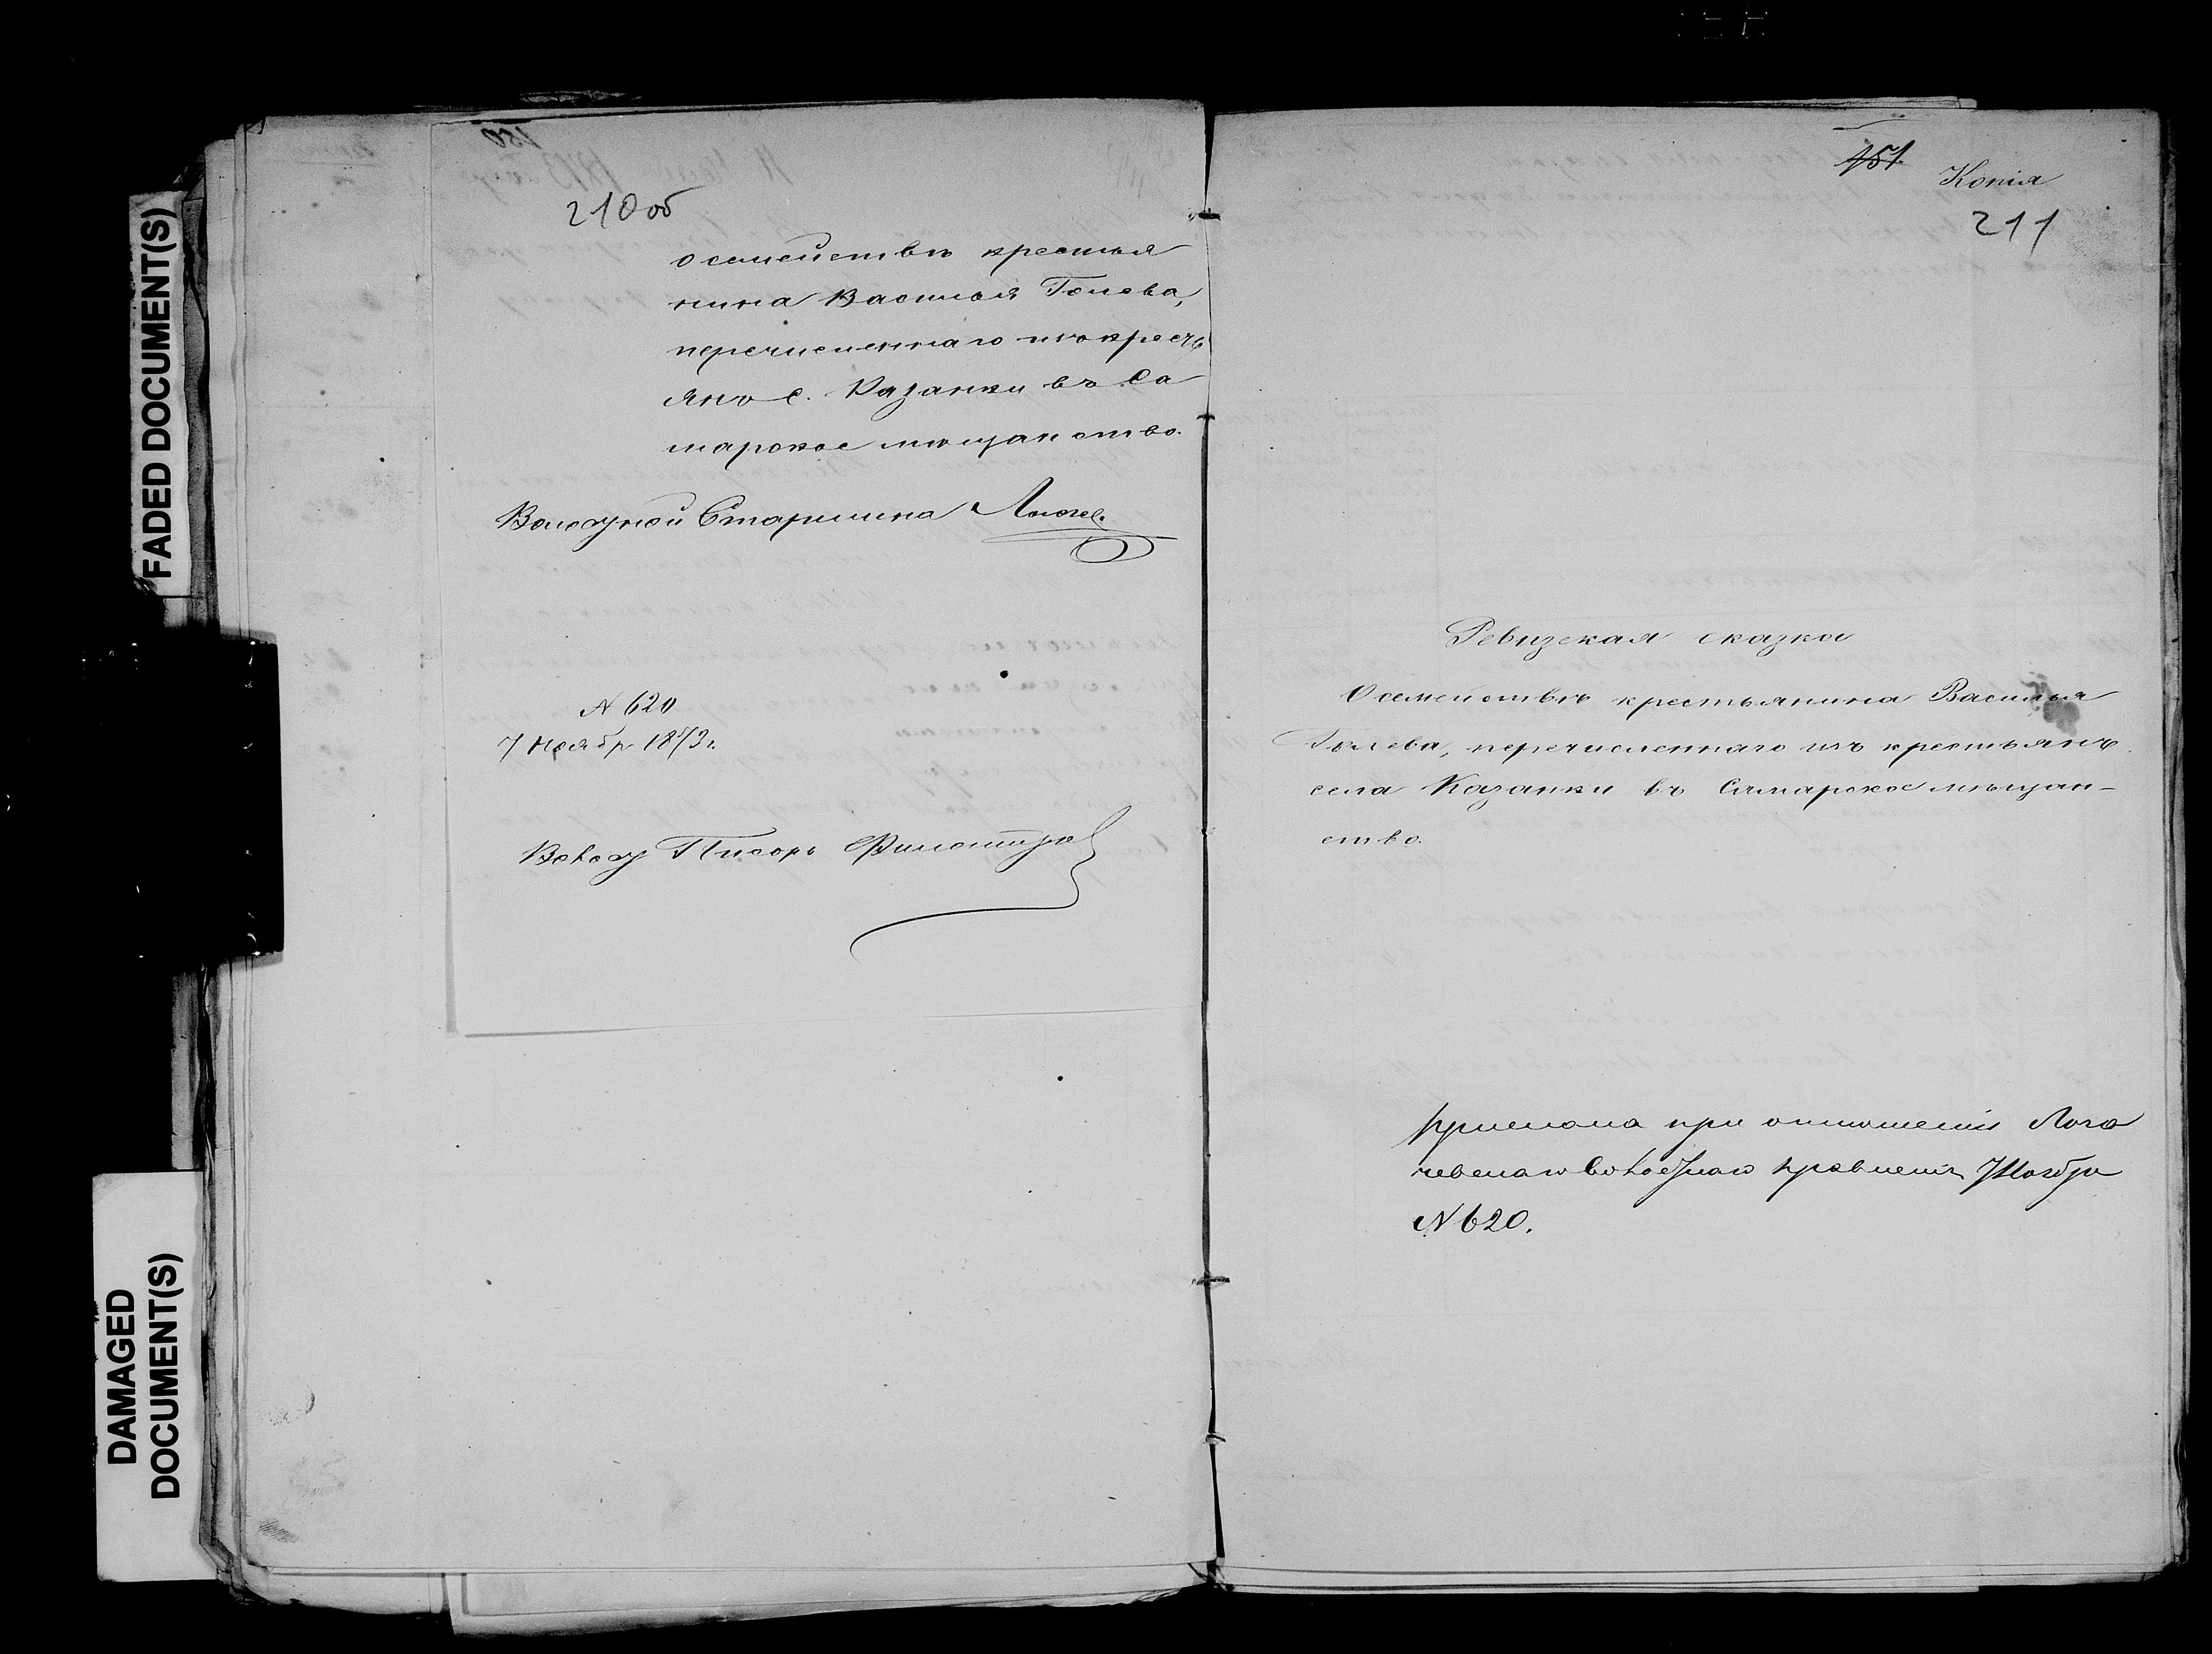 FADED DOCUMENT(S)
DAMAGED
DOCUMENT(S)
150
210 об
о семействѣ крестья
нина Василья Голева,
перечисленнаго изъ крест
янъ с. Казанки въ Са
марское мѣщанство.
Волостной Старшина
N 620
7 Ноябр 1873 г.
Писарь
151
Копія
211
Ревизская сказка
О семействѣ крестьянина Василья
Голева, перечисленнаго изъ крестьянъ
села Казанки въ Самарское мѣщан-
ство.
Прислана при отношеніи Лога
чевскаго Волостнаго Правленія 7 Ноября
N 620.